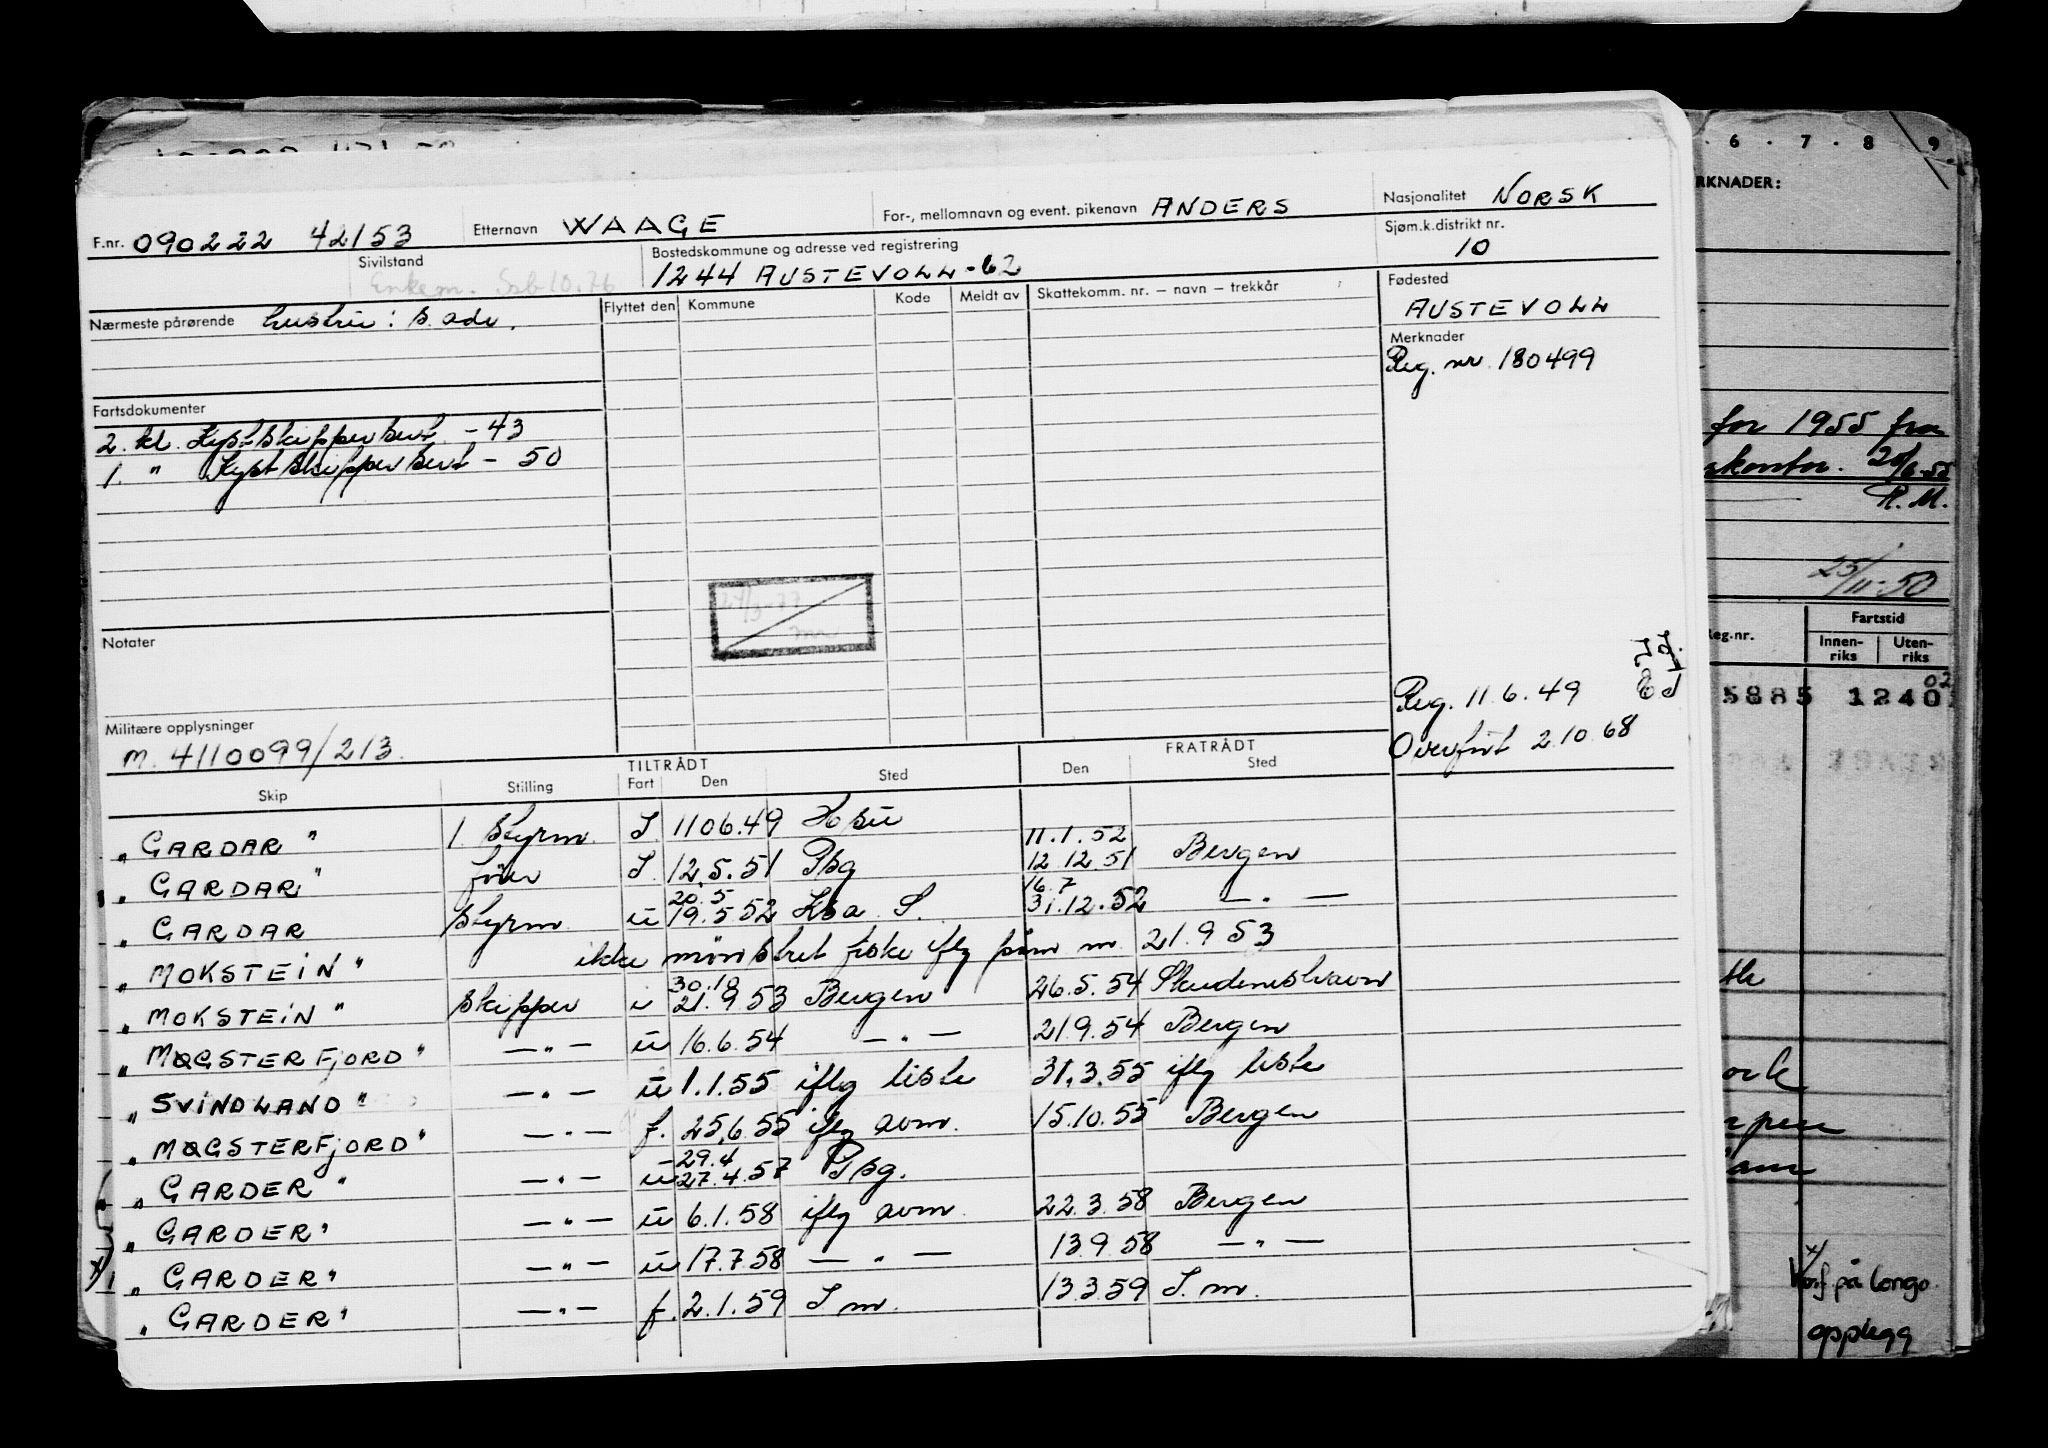 F.nr. 090222 42153 Etternavn WAAGE For-, mellomnavn og event. pikenavn ANDERS Nasjonalitet NORSK
Sivilstand Enkem. Ssb 10.76 Bostedskommune og adresse ved registrering 1244 AUSTEVOLL-62 Sjøm.k.distrikt nr. 10
Nærmeste pårørende hustru: s. adr. Flyttet den Kommune Kode Meldt av Skattekomm. nr. – navn – trekkår Fødested
AUSTEVOLL
Merknader
Reg. nr. 180499
Fartsdokumenter
2. kl. Kystskippersert. - 43
1. " Kystskippersert - 50
Notater
Reg. 11.6.49
Overført 2.10.68
Militære opplysninger
M. 4110099/213.
TILTRÅDT FRATRÅDT
Skip Stilling Fart Den Sted Den Sted
" GARDAR " 1. styrm. I. 1106.49 11.1.52
" GARDAR " fører I. 12.5.51 Pbg 12.12.51 Bergen
20.5 16.7
" GARDAR styrm u 19.5.52 31.12.52 — " —
" MOKSTEIN " ikke mønstret fiske iflg påm m. 21.9 53
30.10
" MOKSTEIN " skipper i 21.9 53 Bergen 26.5.54 Skudeneshavn
" MØGSTERFJORD " — " — u 16.6.54 — " — 21.9.54 Bergen
" SVINDLAND " — " — u 1.1.55 iflg liste 31.3.55 iflg liste
" MØGSTERFJORD " — " — f. 25.6.55 iflg avm. 15.10.55 Bergen
29.4
" GARDER " — " — u 27.4.57 Pbg.
" GARDER " — " — u 6.1.58 iflg avm. 22.3.58 Bergen
" GARDER " — " — u 17.7.58 — " — 13.9.58 — " —
" GARDER " — " — f. 2.1.59 S.m. 13.3.59 S.m.
. 6 . 7 . 8 9.
RKNADER:
for 1955 fra
skontor. 20/6-55
R.M.
25/11-50
Reg.nr. Fartstid
Innen-riks Uten-riks
02
5885 1240
x/
Konf. på Longo.
opplegg